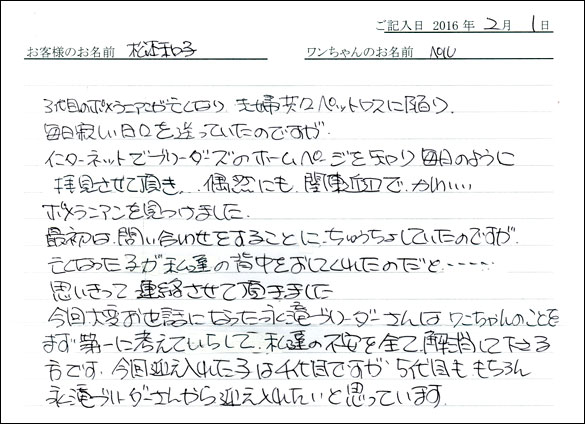 ご記入日 2016 年 2 月 1 日
お客様のお名前 松澤和子 ワンちゃんのお名前 NOIU
3代目のポメラニアンが亡くなり 夫婦共々ペットロスに陥り、
毎日寂しい日々を送っていたのですが
インターネットでブリーダーズのホームページを知り毎日のように
拝見させて頂き、偶然にも、関東血で、かわいい
ポメラニアンを見つけました、
最初は、問い合わせをすることに、ちゅうちょしていたのですが、
亡くなった子が私達の背中をおしてくれたのだと・・・・・
思いきって連絡させて頂きました
今回大変お世話になった永滝ブリーダーさんはワンちゃんのことを
まず第一に考えていらして、私達の不安を全て、解消して下さる
方です、今回迎え入れた子は4代目ですが、5代目も、もちろん
永滝ブリーダーさんから迎え入れたいと思っています、